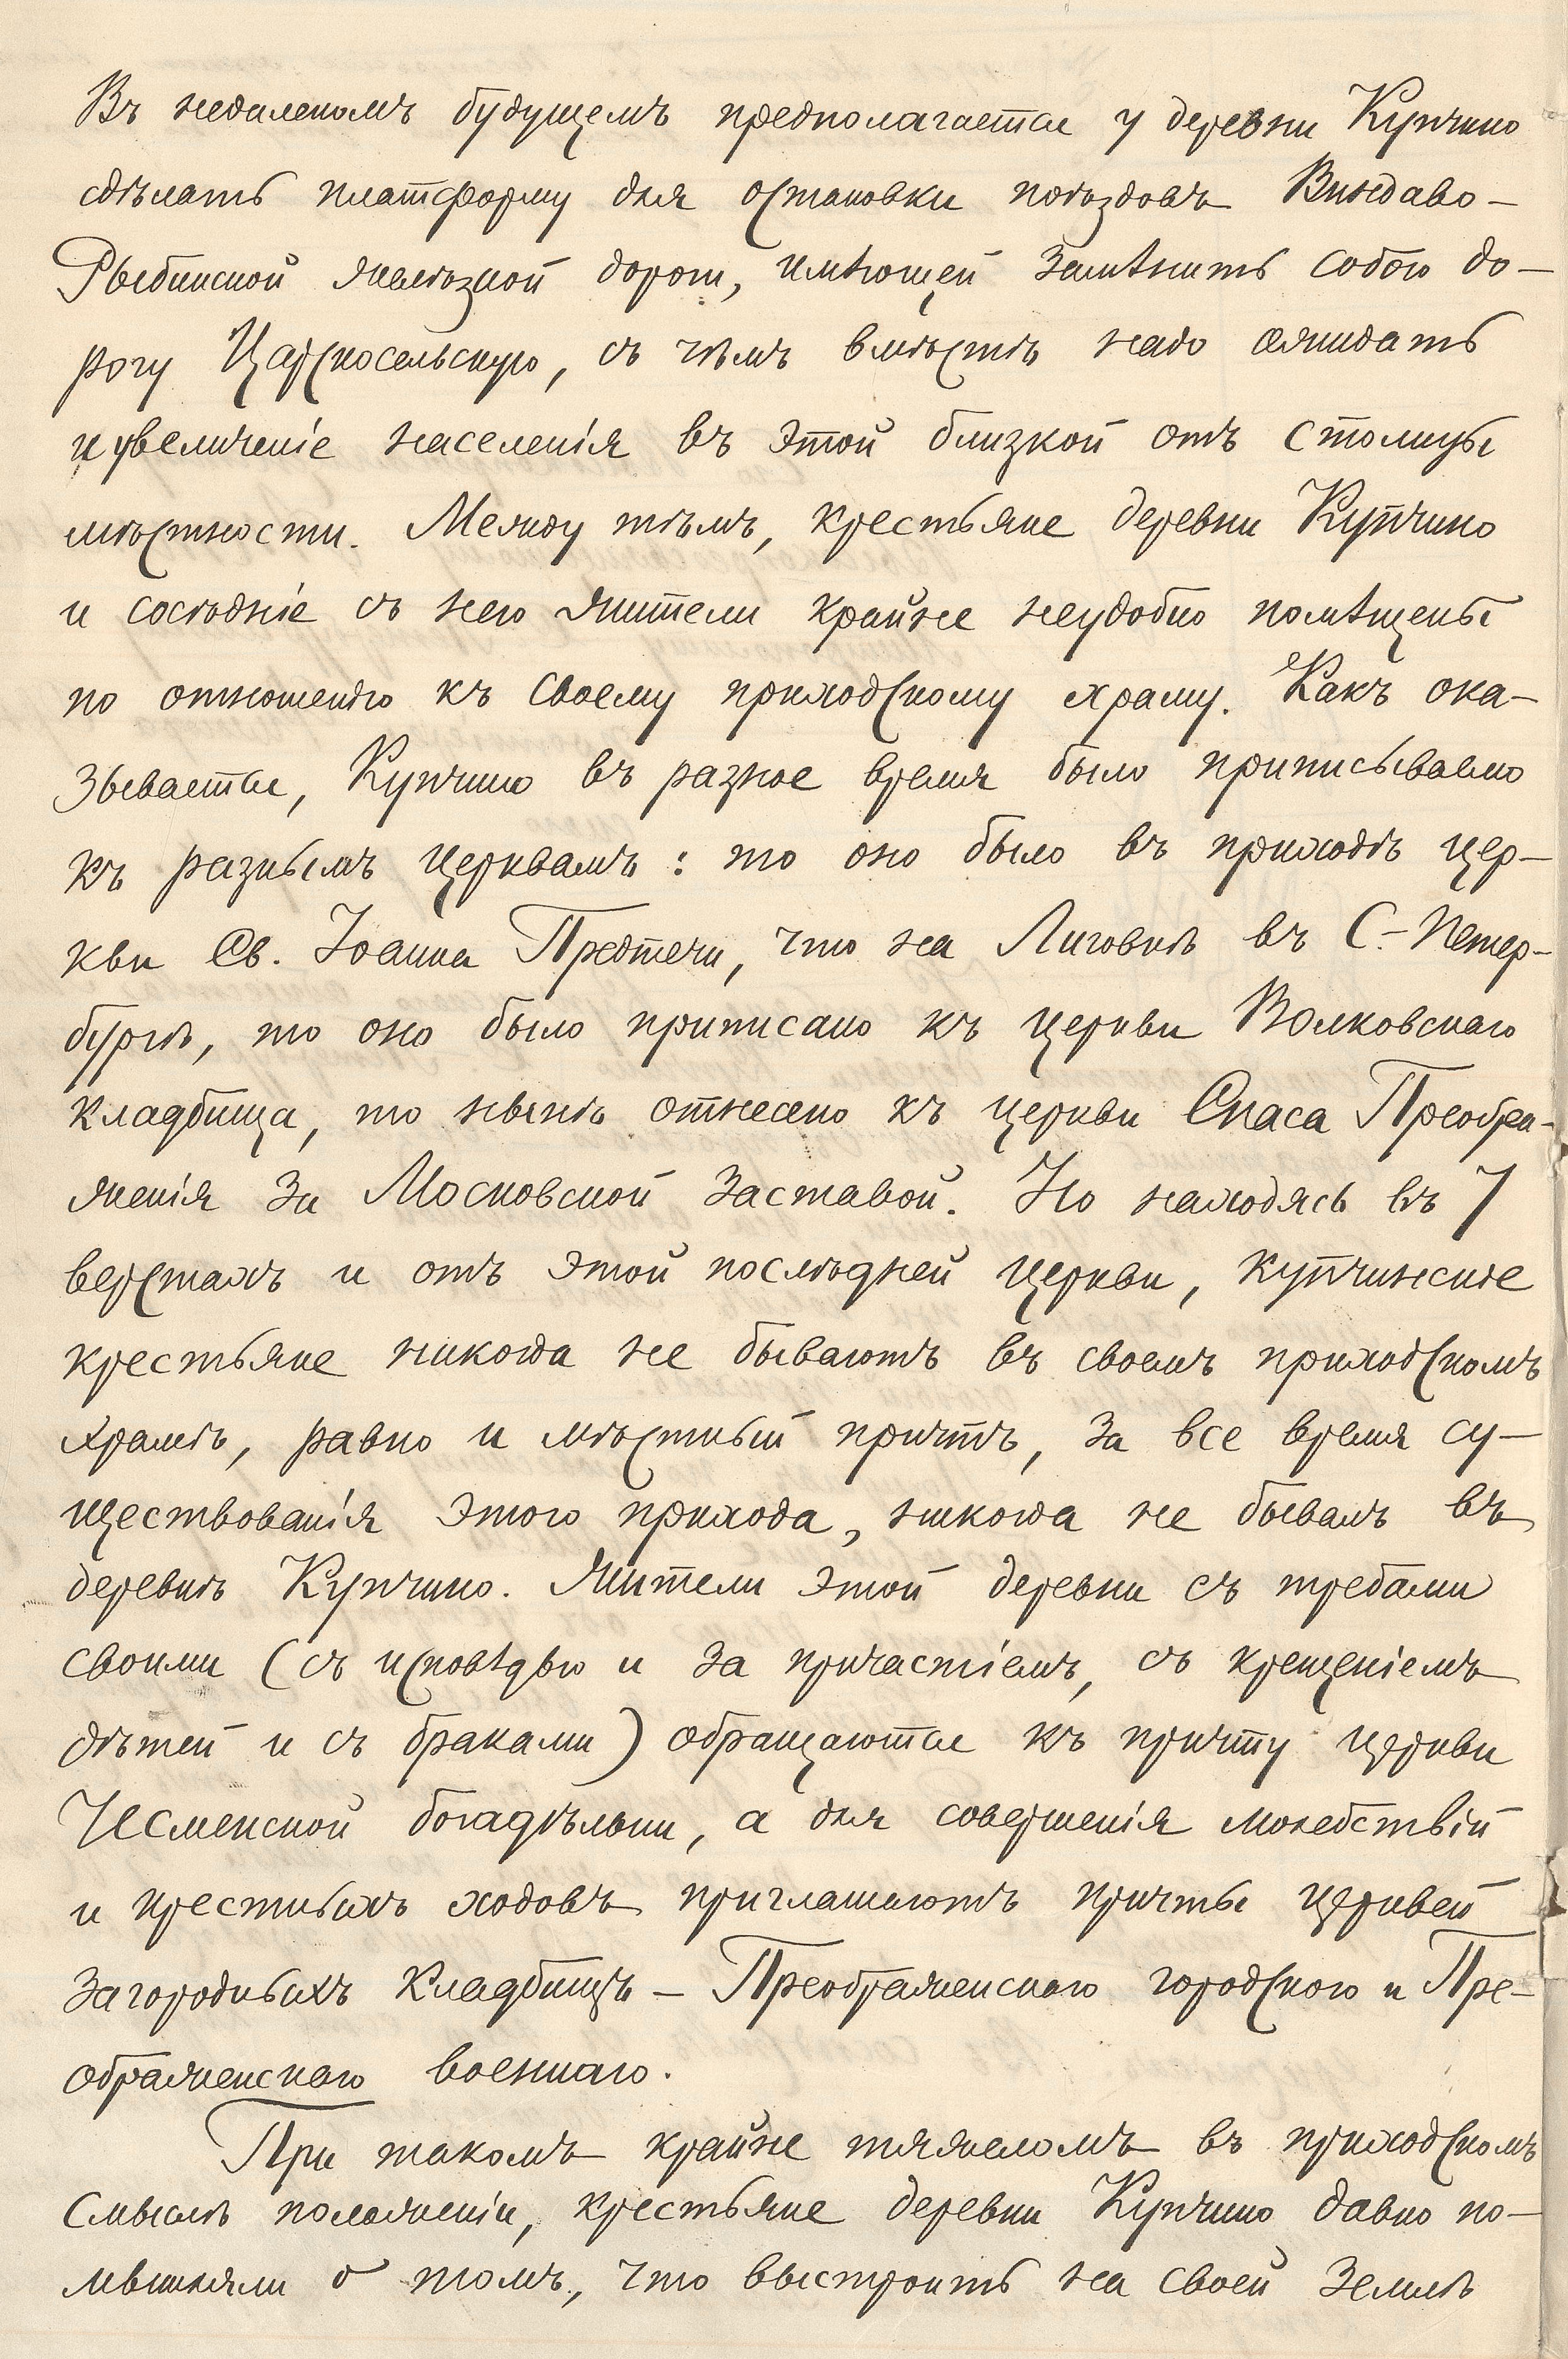 Въ недалекомъ будущемъ предполагается у деревни Купчино
сдѣлать платформу для остановки поѣздовъ Виндаво-
Рыбинской желѣзной дороги, имѣющей замѣнить собою до-
рогу Царскосельскую, съ чѣмъ вмѣстѣ надо ожидать
и увеличеніе населенія въ этой близкой отъ столицы
мѣстности. Между тѣмъ, крестьяне деревни Купчино
и сосѣдніе съ нею жители крайне неудобно помѣщены
по отношенію къ своему приходскому храму. Какъ ока-
зывается, Купчино въ разное время было приписываемо
къ разнымъ церквамъ: то оно было въ приходѣ цер-
кви Св. Іоанна Предтечи, что на Лиговкѣ въ С.-Петер-
бургѣ, то оно было приписано къ церкви Волковскаго
кладбища, то нынѣ отнесено къ церкви Спаса Преобра-
женія за Московской заставой. Но находясь въ 7
верстахъ и отъ этой послѣдней церкви, купчинскіе
крестьяне никогда не бываютъ въ своемъ приходскомъ
храмѣ, равно и мѣстный причтъ, за все время су-
ществованія этого прихода, никогда не бывалъ въ
деревнѣ Купчино. Жители этой деревни съ требами
своими (съ исповѣдью и за причастіемъ, съ крещеніемъ
дѣтей и съ браками) обращаются къ причту церкви
Чесменской богадѣльни, а для совершенія молебствій
и крестныхъ ходовъ приглашаютъ причты церквей
загородныхъ кладбищъ – Преображенскаго городского и Пре-
ображенскаго военнаго.
При такомъ крайне тяжеломъ въ приходскомъ
смыслѣ положеніи, крестьяне деревни Купчино давно по-
мышляли о томъ, что выстроить на своей землѣ